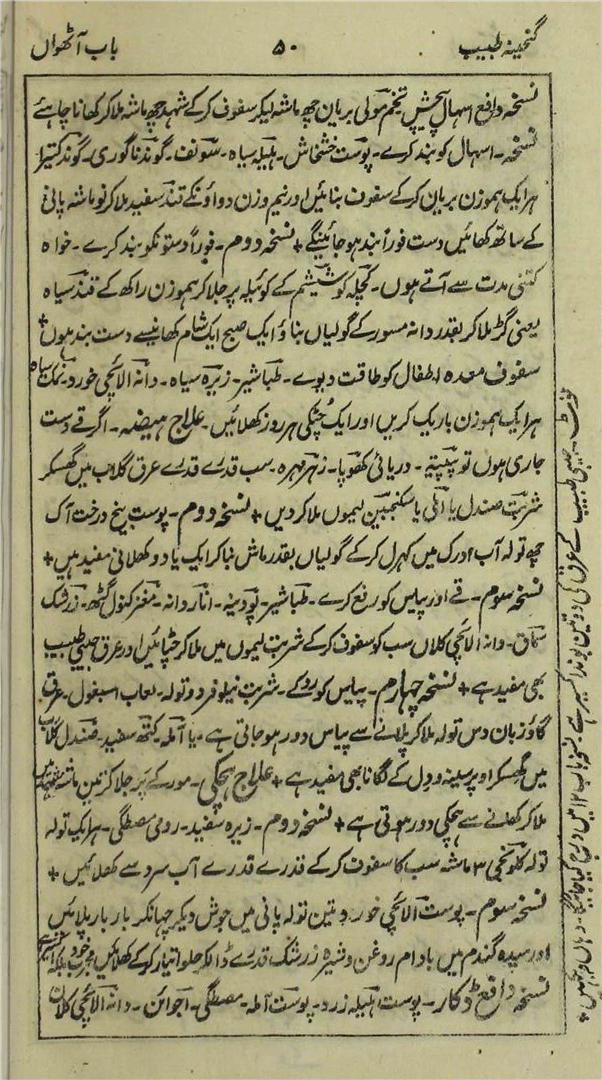 گنجینہ طبیب ۵۰ باب آٹھواں
نسخہ دافع اسہال پیچش تخم مولی بریان چھ ماشہ لیکر سفوف کرکے شہد چھ ماشہ ملاکر کھانا چاہئے
نسخہ۔ اسہال کو بند کرے۔ پوست خشخاش۔ ہلیلہ سیاہ۔ سونف۔ گوند ناگوری۔ گوند کتیرا
ہر ایک ہموزن بریان کرکے سفوف بنائیں اور نیم وزن دواؤنکے قند سفید ملاکر نو ماشہ پانی
کے ساتھ کھائیں دست فوراً بند ہو جائینگے + نسخہ دوم۔ فوراً دستونکو بند کرے۔ خواہ
کتنی مدت سے آتے ہوں۔ کچلہ کو شیشم کے کوئیلہ پر جلاکر ہموزن راکھ کے قند سیاہ
یعنی گڑ ملاکر بقدر دانہ مسور کے گولیاں بناؤ ایک صبح ایک شام کھانیسے دست بند ہوں +
سفوف معدہ اطفال کو طاقت دیوے۔ طباشیر۔ زیرہ سیاہ۔ دانہ الائچی خورد۔ نمک سیاہ
ہر ایک ہموزن باریک کریں اور ایک چٹکی ہر روز کھلائیں۔ علاج ہیضہ۔ اگر قے دست
جاری ہوں تو پپیتہ۔ دریائی کھوپا۔ زہر مہرہ۔ سب قدرے قدرے عرق گلاب میں گھسکر
شربت صندل یا املی یا سکنجبین لیموں ملاکر دیں + نسخہ دوم۔ پوست بیخ درخت آک
چھ تولہ آب ادرک میں کھرل کرکے گولیاں بقدر ماش بناکر ایک یا دو کھلانی مفید ہیں +
نسخہ سوم۔ قے اور پیاس کو رفع کرے۔ طباشیر۔ پودینہ۔ انار دانہ۔ مغز کنول گٹھ۔ زرشک
سماق۔ دانہ الائچی کلاں سب کو سفوف کرکے شربت لیموں میں ملاکر چٹائیں اور عرق جیبی طبیب
بھی مفید ہے + نسخہ چہارم۔ پیاس کو روکے۔ شربت نیلوفر دو تولہ۔ لعاب اسبغول۔ عرق
گاؤزبان دس تولہ ملاکر پلانے سے پیاس دور ہو جاتی ہے۔ یا آملہ۔ کتھ سفید۔ صندل گلاب
میں گھسکر اوپر سینہ و دل کے لگانا بھی مفید ہے + علاج ہچکی۔ مور کے پر جلا کر تین ماشہ شہد میں
ملاکر کھلانے سے ہچکی دور ہوتی ہے + نسخہ دوم۔ زیرہ سفید۔ رومی مصطگی۔ ہر ایک تولہ
تولہ کلونجی ۳ ماشہ سب کا سفوف کرکے قدرے قدرے آب سرد سے کھلائیں +
نسخہ سوم۔ پوست الائچی خورد تین تولہ پانی میں جوش دیکر چھانکر بار بار پلائیں
اور میدہ گندم میں بادام روغن و شیرہ زرشک قدرے ڈالکر حلوا تیار کرکے کھلائیں
نسخہ دافع ڈکار۔ پوست ہلیلہ زرد۔ پوست آملہ۔ مصطگی۔ اجوائن۔ دانہ الائچی کلاں
نوٹ۔ جیبی طبیب کے عرق کی دو تین بوند اکسیر ہے نسخہ باب ۱۲ میں درج کیا جائیگا۔ وہاں